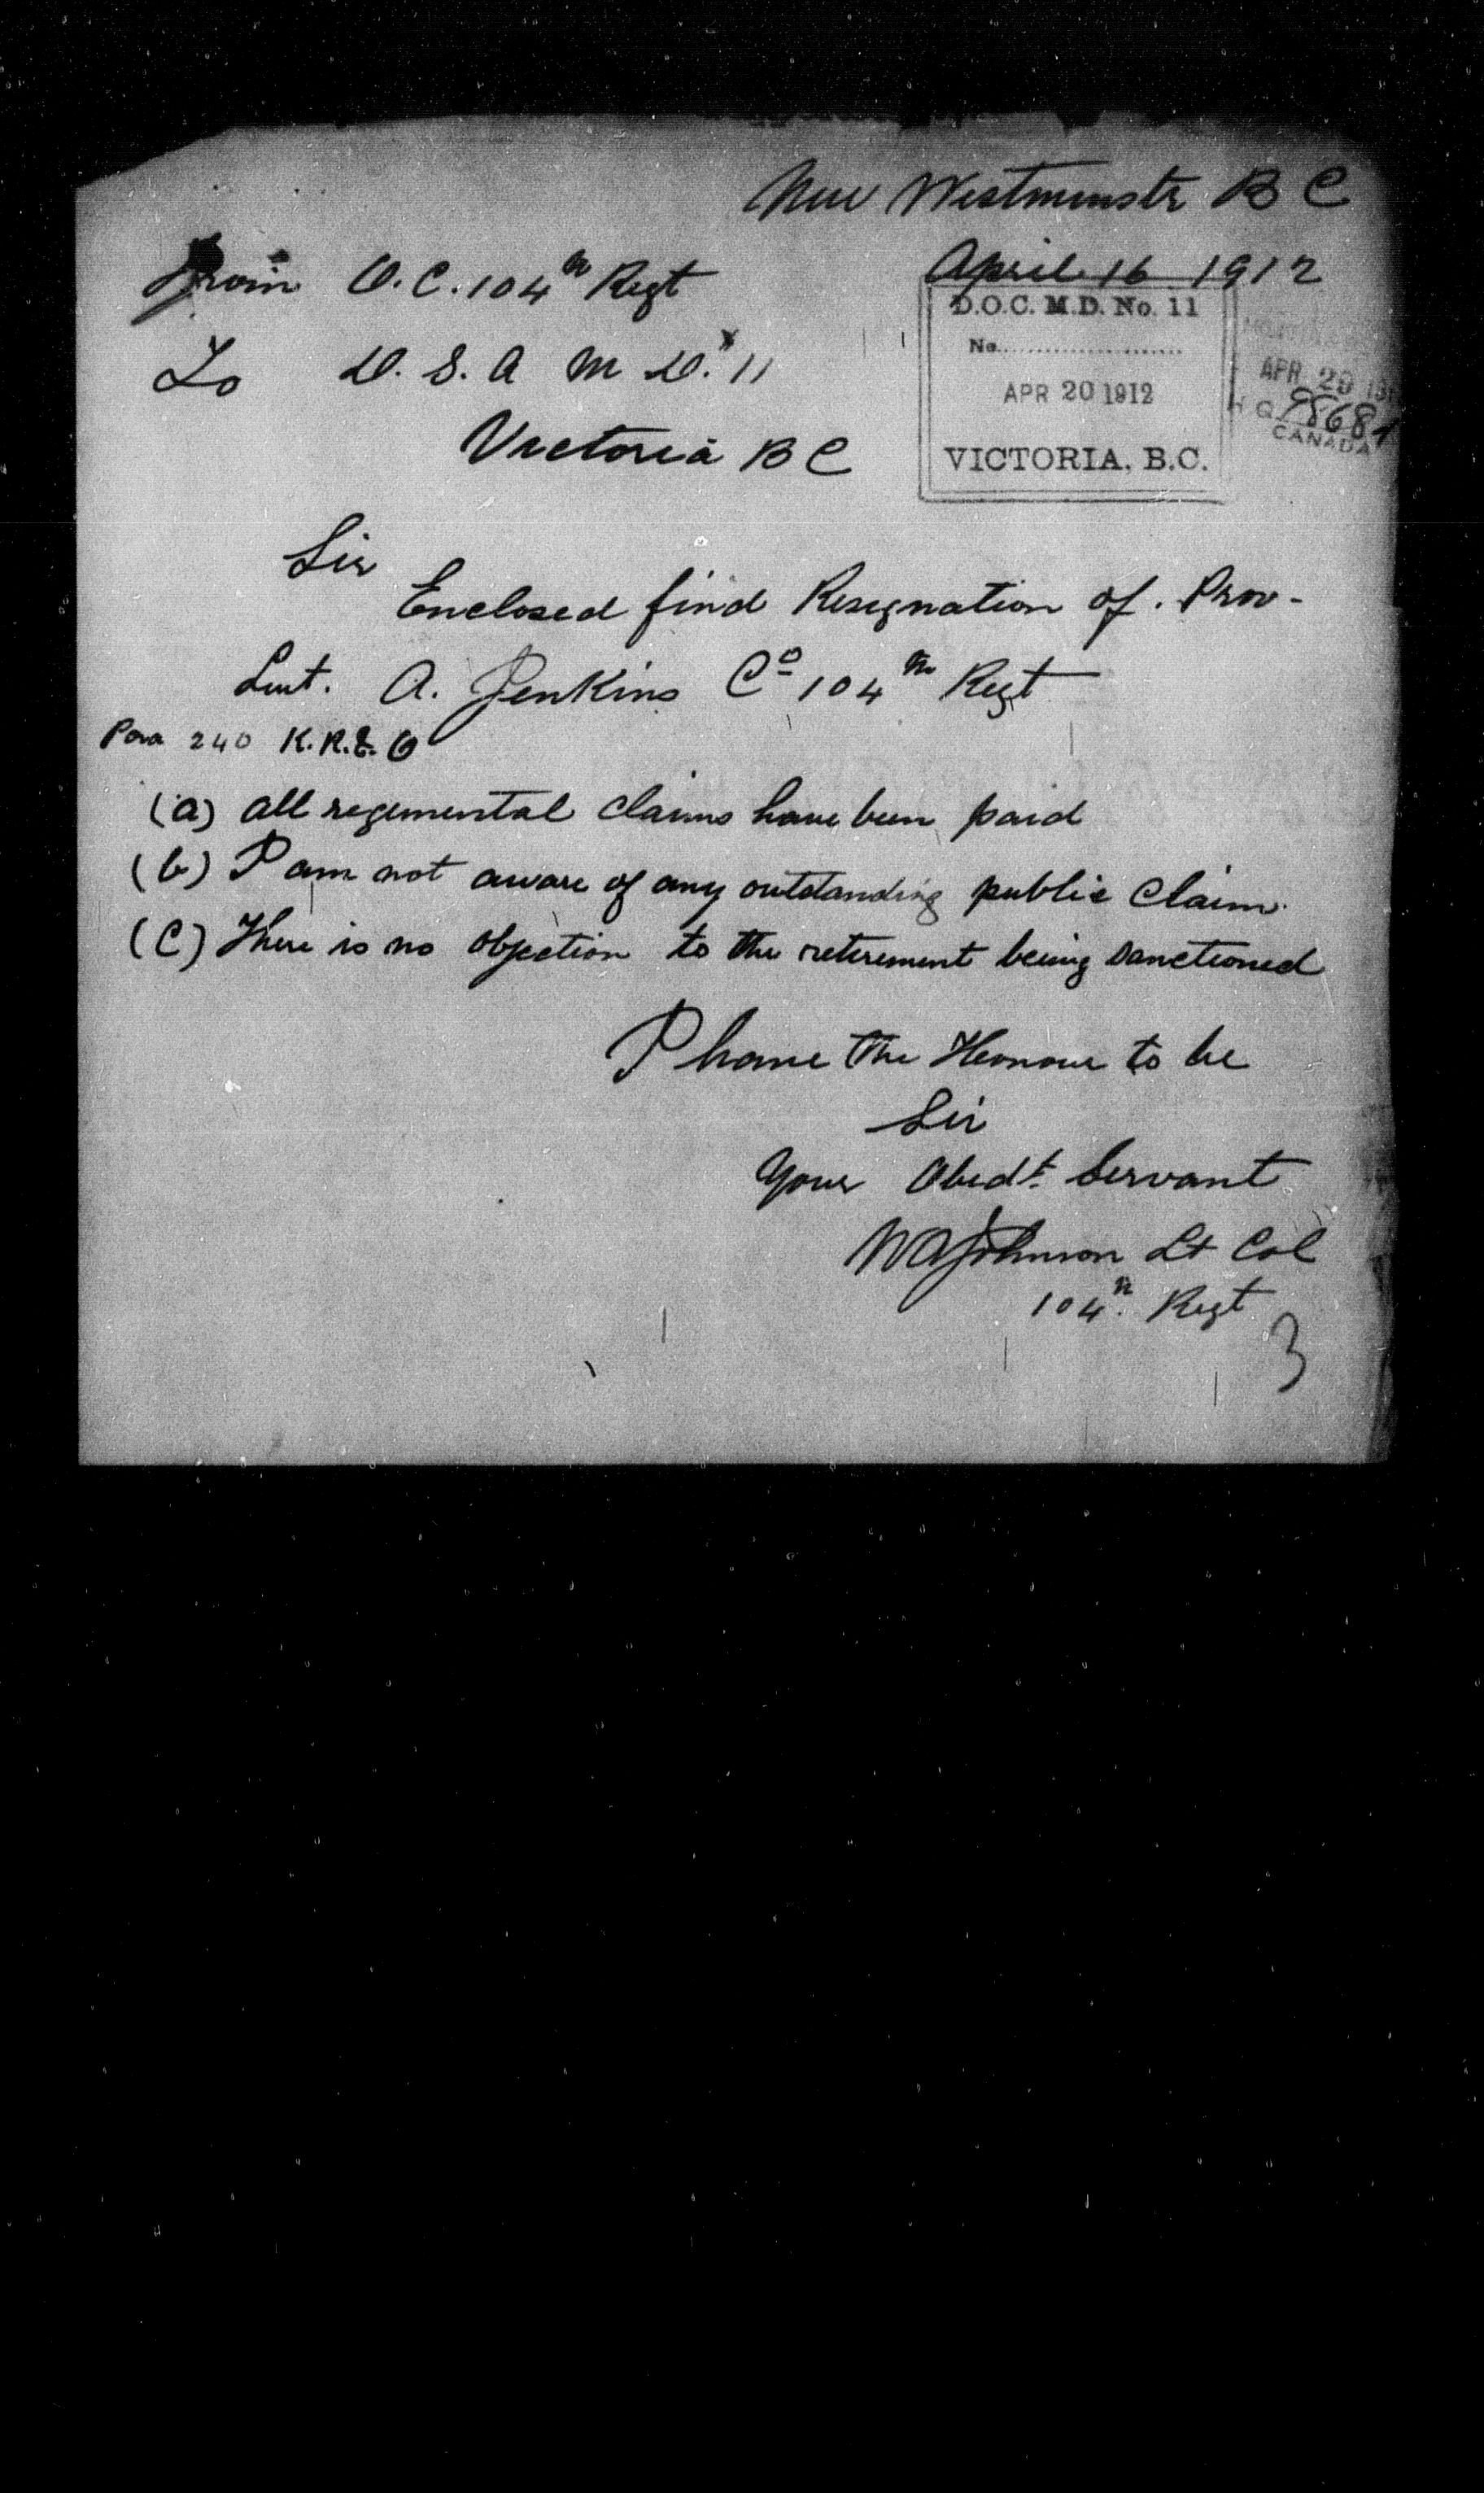 New Westminster B C
April 16 1912
From O.C. 104th Regt
To D.S.A M D. 11
Victoria B C
D.O.C. M.D. No. 11
No.
APR 20 1912
VICTORIA, B.C.
APR 29 191
H Q 98681
CANADA
Sir
Enclosed find Resignation of. Prov-
Lieut. A. Jenkins Co 104th Regt
Para 240 K.R.& O
(a) all regimental claims have been paid
(b) I am not aware of any outstanding public claim.
(C) There is no objection to the retirement being sanctioned
I have the Honour to be
Sir
Your Obedt. Servant
Johnson Lt Col
104th. Regt
3